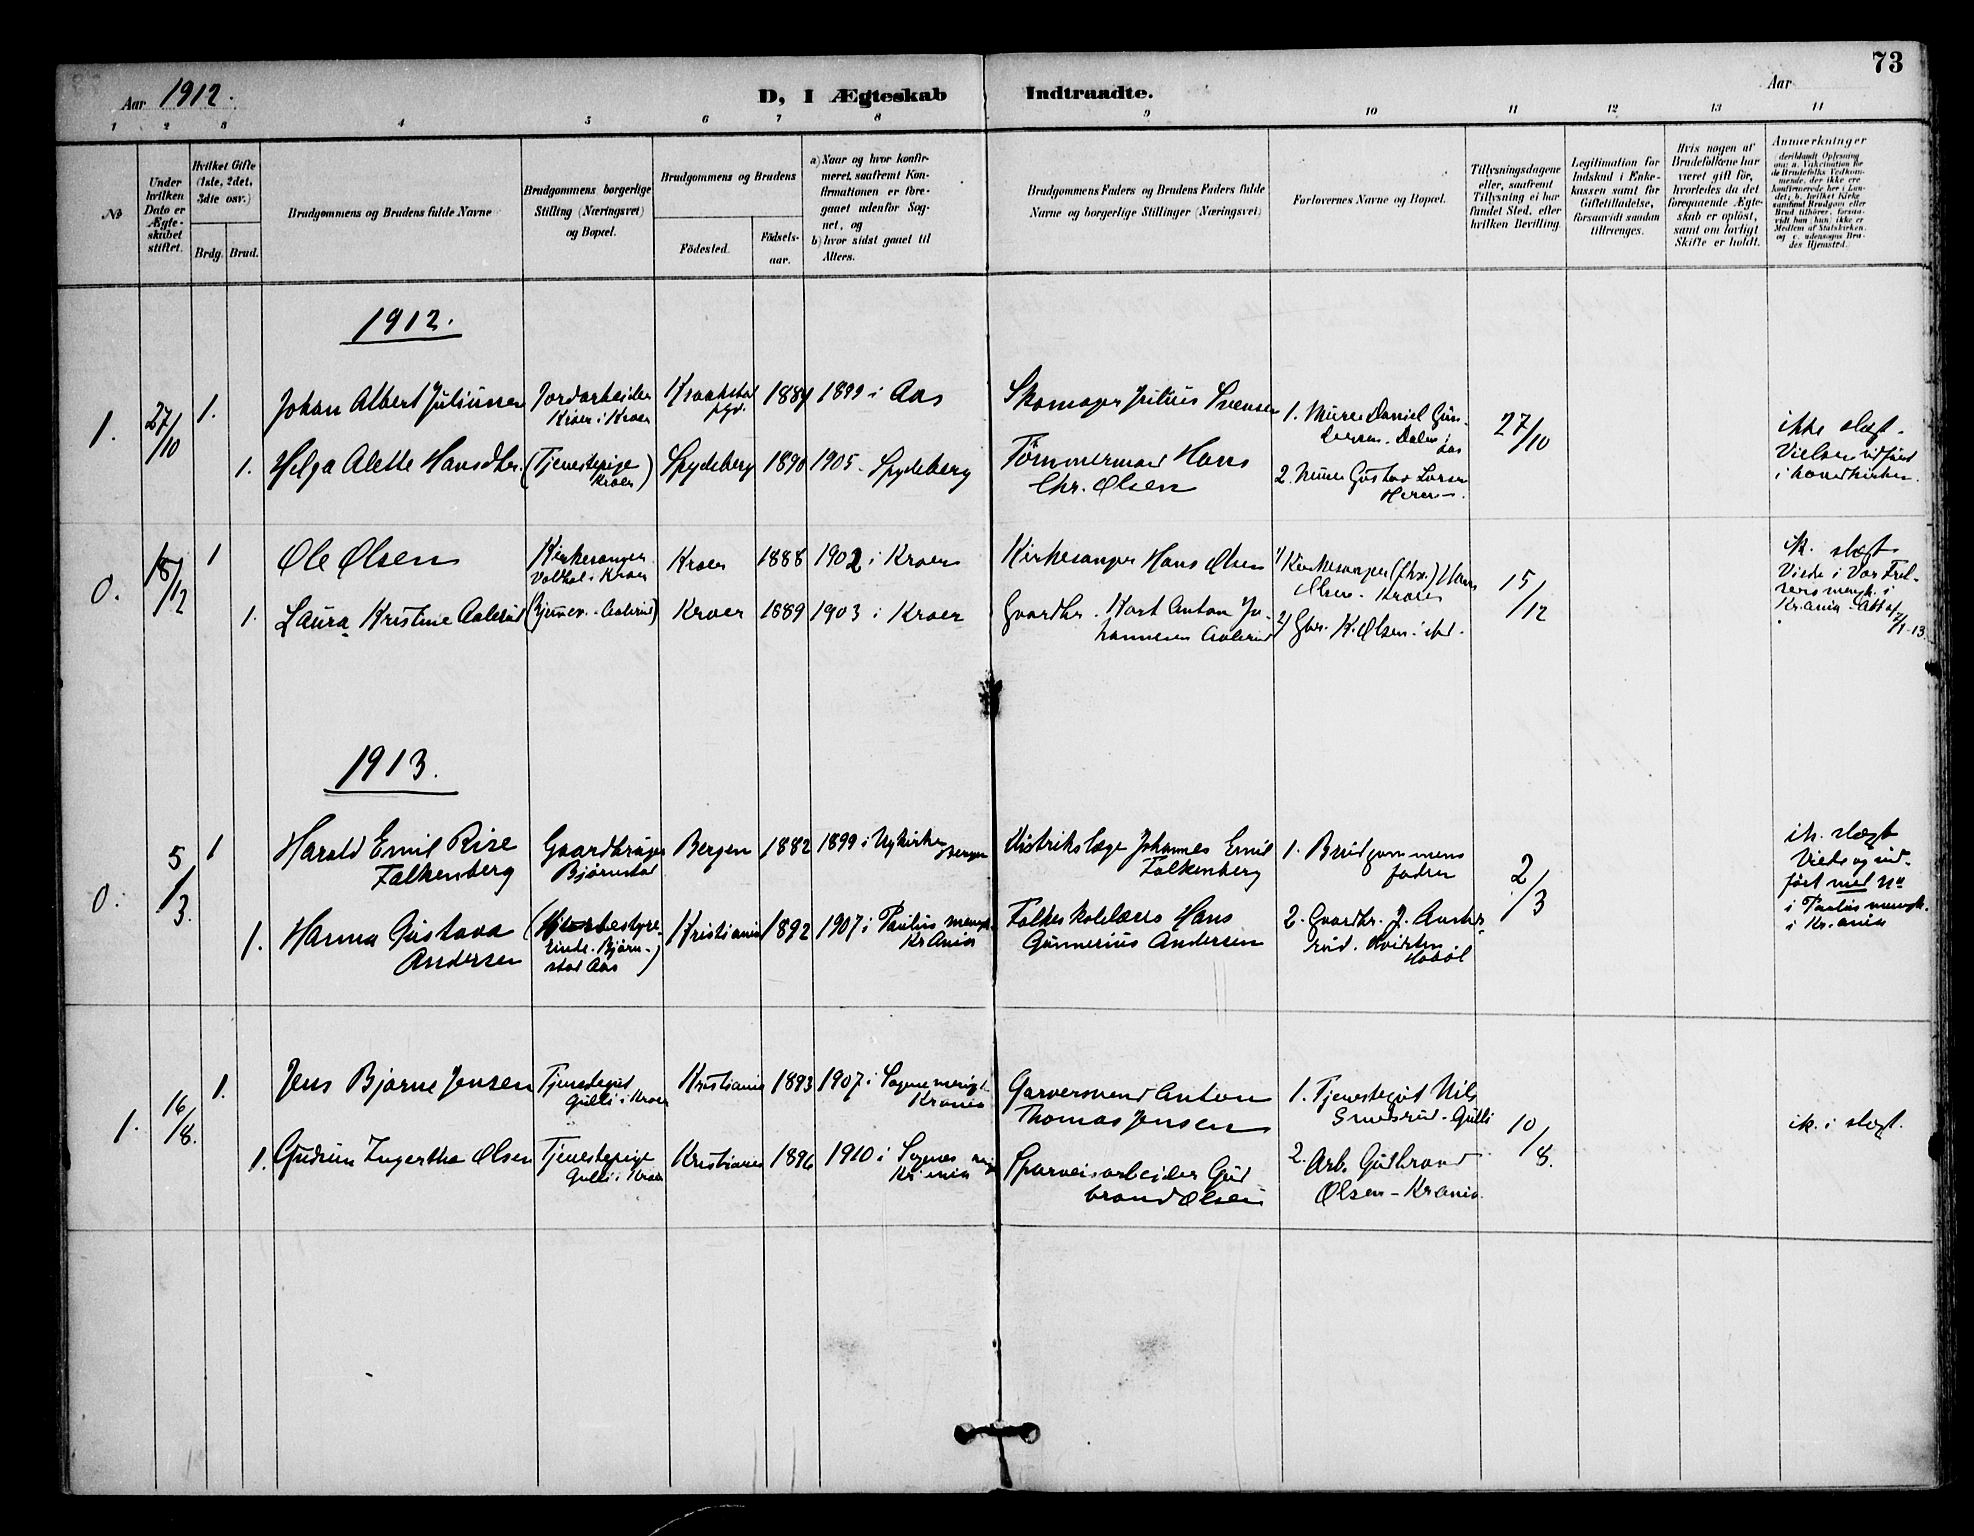 73
Aar 1912.
D, I Ægteskab Indtraadte.
Aar
1 2 3 4 5 6 7 8 9 10 11 12 13 14
№
Under hvilken Dato er Ægteskabet stiftet.
Hvilket Gifte (1ste, 2det, 3die osv.)
Brdg. Brud.
Brudgommens og Brudens fulde Navne
Brudgommens borgerlige Stilling (Næringsvei) og Bopæl.
Brudgommens og Brudens
Fødested.
Fødselsaar.
a) Naar og hvor konfirmeret, saafremt Konfirmationen er foregaaet udenfor Sognet, og
b) hvor sidst gaaet til Alters.
Brudgommens Faders og Brudens Faders fulde Navne og borgerlige Stillinger (Næringsvei)
Forlovernes Navne og Bopæl.
Tillysningsdagene eller, saafremt Tillysning ei har fundet Sted, efter hvilken Bevilling.
Legitimation for Indskud i Enkekassen samt for Giftetilladelse, forsaavidt saadan tiltrænges.
Hvis nogen af Brudefolkene har været gift før, hvorledes da det foregaaende Ægteskab er opløst, samt om lovligt Skifte er holdt.
Anmærkninger
deriblandt Oplysning om: a. Vakcination for de Brudefolks Vedkommende, der ikke ere konfirmerede her i Landet; b. hvilket Kirkesamfund Brudgom eller Brud tilhører, forsaavidt han (hun) ikke er Medlem af Statskirken, og c. udensogns Brudes Hjemsted.
1912.
1. 27/10 1. Johan Albert Juliussen
Jordarbeider
Kroer i Kroer
Kraakstad
1899 i Aas
Skomager Julius Svensen
1. Murer Daniel
Aas
27/10
ikke slægt.
1. Helga Alette Hansdtr.
(Tjenestepige
Kroer)
Spydeberg 1890 1905 - Spydeberg
Tømmermand Hans
Chr. Olsen
2. Murer Gustav Larsen
Vielsen indført
i hovedkirken.
0. 18/12 1 Ole Olsen
Kirkesanger
i Kroer
Kroer 1888 1902 i Kroer
Kirkesanger Hans Olsen
1) Kirkesanger Hans
Olsen - Kroer
15/12
ik. slægt
Viede i Vor Frel-
sers menigh. i
Kr.ania -
1. Laura Kristine Aalerud
(Hjemmev. - Aalerud)
Kroer 1889 1903 i Kroer
Gaardbr. Karl Anton Jo-
hannesen Aalerud
2) Gbr. K. Olsen
1913.
0. 5/3. 1 Harald Emil Rise
Falkenberg
Gaardbruger
Bjørnstad
Bergen 1882 1899 i Nykirken
Bergen
Distriktslæge Johannes Emil
Falkenberg
1. Brudgommens
fader
2/3
ik. slægt
Viede og ind-
ført med No
i Paulus menigh.
i Kr.ania
1. Hanna Gustava
Andersen
Bjørn-
stad Aas)
Kristiania 1892 1907 i Paulus menigh.
Kr.Ania
Folkeskolelærer Hans
Gunnerius Andersen
2. Gaardbr. J.
Hobøl
1. 16/8. 1. Jens Bjarne Jensen
Tjenestegut
Gulli i Kroer
Kristiania 1893 1907 i Sagene menigh.
Kr.ania
Garversvend Anton
Thomas Jensen
1. Tjenestegut Nils
Smedsrud - Gulli
10/8.
ik. i slægt.
1. Gudrun Ingertha Olsen
Tjenestepige
Gulli i Kroer
Kristiania 1896 1910 i Sagenes menigh.
Kr.ania
Sporveisarbeider Gud-
brand Olsen
2. Arb. Gudbrand
Olsen - Kr.ania.